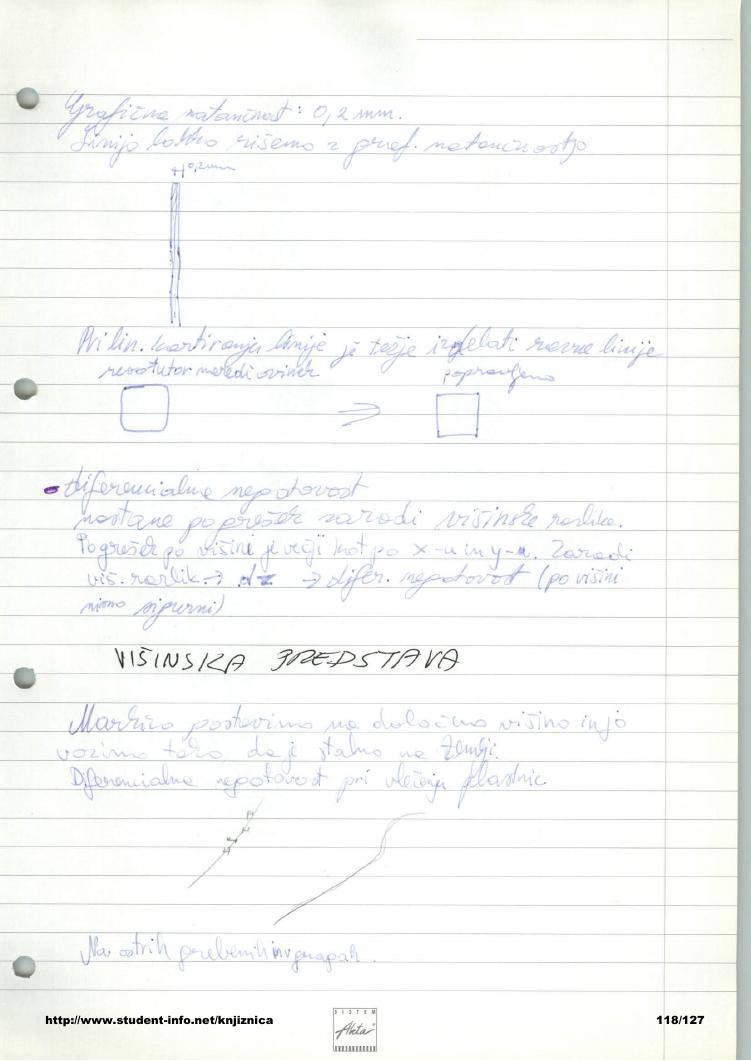 Grafična natančnost: 0,2 mm.
Linijo lahko rišemo z graf. natančnostjo
0,2mm
Pri lin. kartiranju linije je težje izdelati ravne linije
restitutor naredi ovinek
popravljeno
diferencialne negotovost
nastane pogrešek zaradi višinske razlike.
Pogrešek po višini je večji kot po x-u in y-u. Zaradi
viš. razlik → dz → difer. negotovost (po višini
nismo sigurni)
VIŠINSKA PREDSTAVA
Markico postavimo na določeno višino in jo
vozimo tako, da je stalno na Zemlji.
Diferencialna negotovost pri vlečenju plastnic.
Na ostrih grebenih in v grapah.
http://www.student-info.net/knjiznica
SISTEM
Akta
118/127